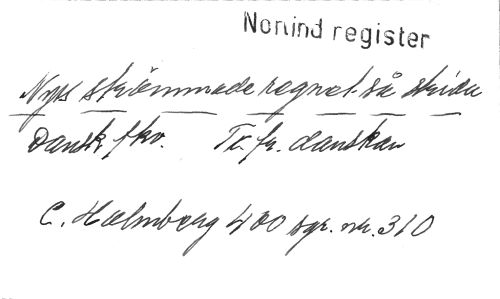 Nonind register
Nyss strömmade regnet så strida
Dansk fkv. Tr. fr. danskan
C. Holmberg 400 sgr. nr. 310